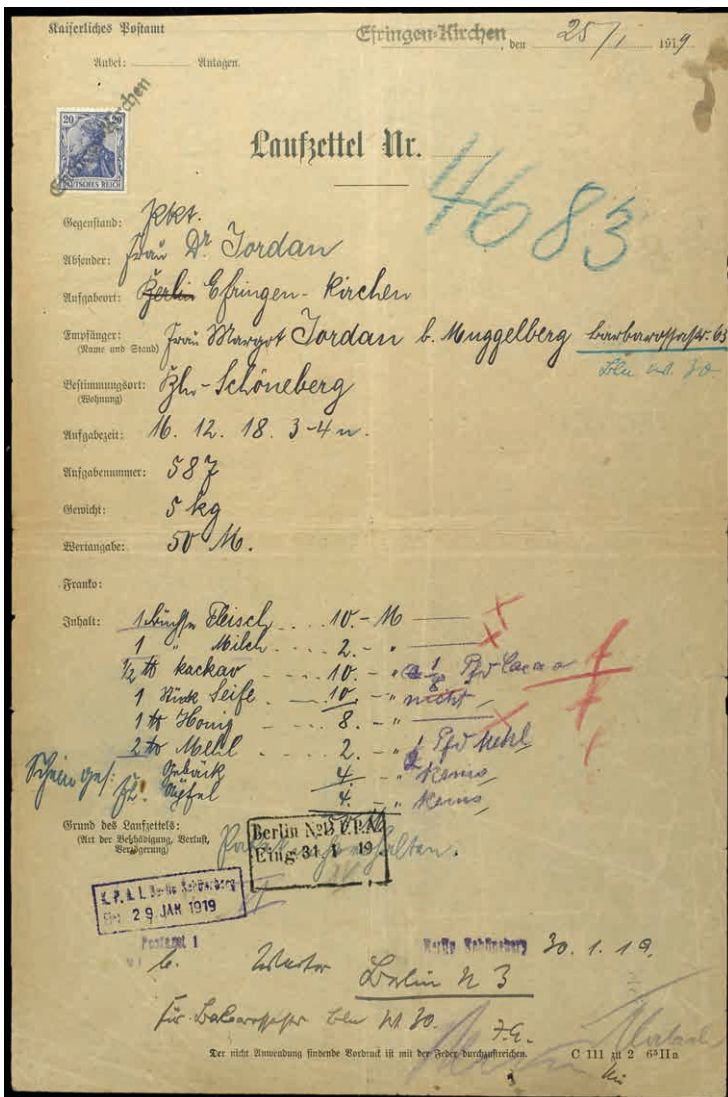 Kaiserliches Postamt
Efringen-Kirchen, den 25/1 1919
Anbei: Anlagen.
20 20
DEUTSCHES REICH
Laufzettel Nr.
4683
Gegenstand: Pkt.
Absender: Frau Dr. Jordan
Aufgabeort: Berlin Efringen-Kirchen
Empfänger: Frau Margot Jordan b. Muggelberg Barbarossastr. 63
(Name und Stand)
Bln W. 30
Bestimmungsort: Bln-Schöneberg
(Wohnung)
Aufgabezeit: 16. 12. 18. 3-4 n.
Aufgabenummer: 587
Gewicht: 5 kg
Wertangabe: 50 M.
Franko:
Inhalt: 1 Büchse Fleisch 10.- M
1 " Milch 2. - "
1/2 ℔ Kackao 10. - " 1/8 Pfd Cacao
1 Stück Seife 10. - " nicht
1 ℔ Honig 8. - "
2 ℔ Mehl 2. - " Pfd Mehl
Gebäck 4. - " keins
Äpfel 4. - " keine
Grund des Laufzettels:
(Art der Beschädigung, Verlust, Verzögerung)
Berlin N. 3 P.P.A.
Eing 31 1 19
Berlin Schöneberg
29 JAN 1919
Postamt 1
Berlin Schöneberg 30. 1. 19.
Weiter Berlin N 3
für Bln W. 30.
Der nicht Anwendung findende Vordruck ist mit der Feder durchzustreichen. C 111 zu 2